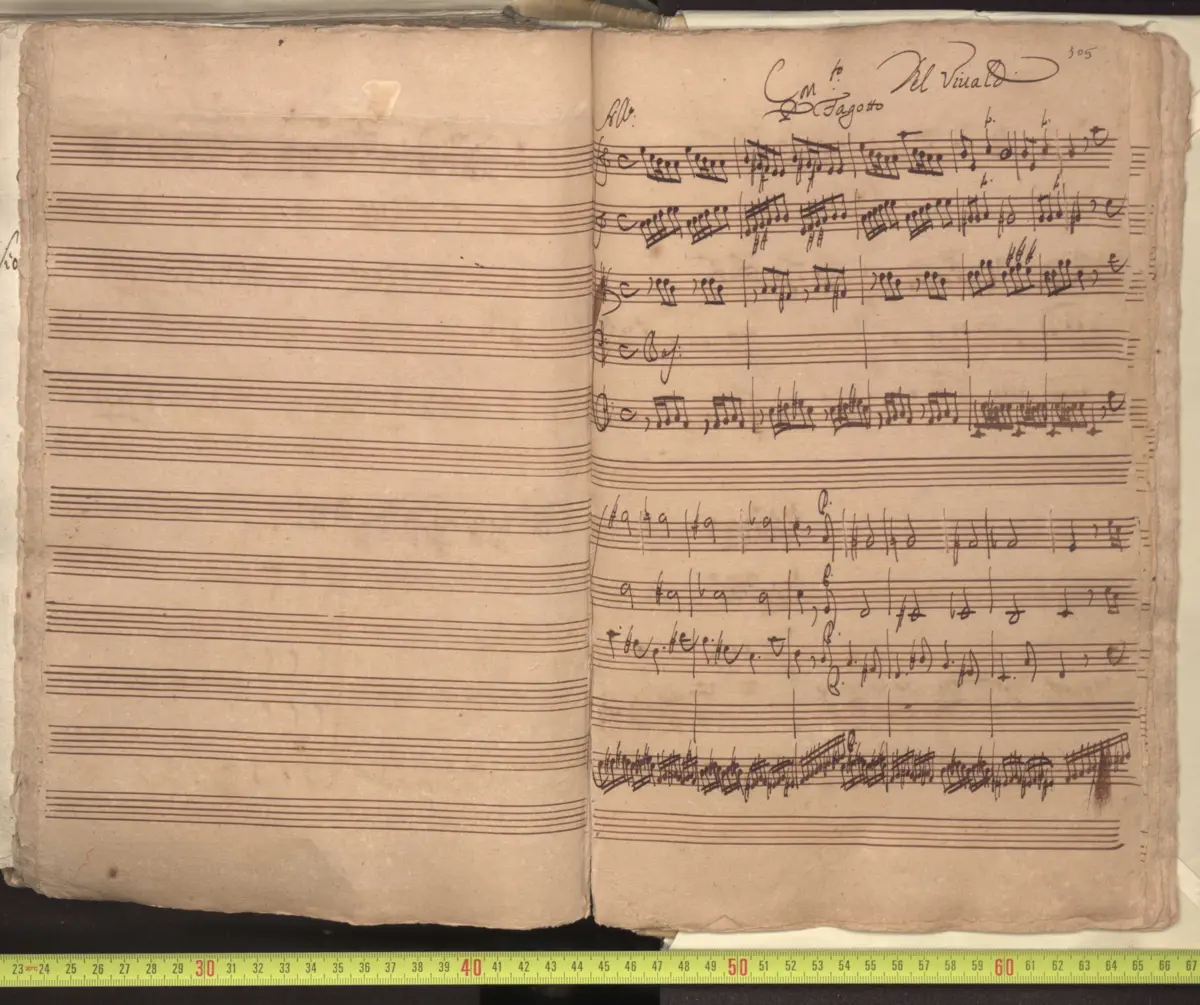 305
Con.to Del Vivaldi
P Fagotto
All.o
Bas:
p. p.
p. p.
P.
P.
P.
P.
P.
23 24 25 26 27 28 29 30 31 32 33 34 35 36 37 38 39 40 41 42 43 44 45 46 47 48 49 50 51 52 53 54 55 56 57 58 59 60 61 62 63 64 65 66 67